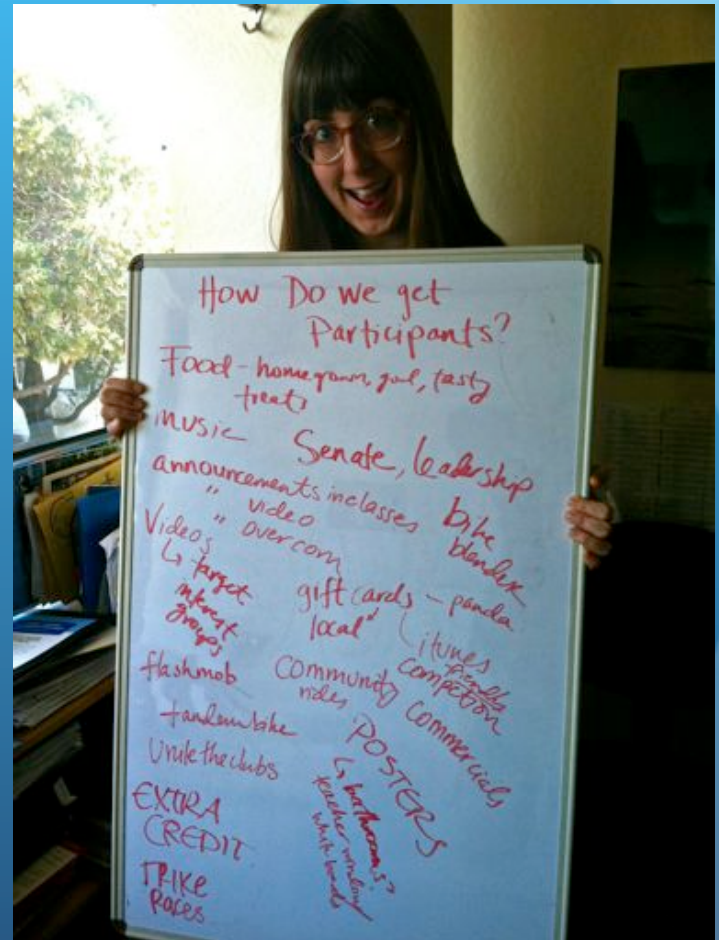 How Do we get
Participants?
Food - homegrown, good, tasty
treats
music
Senate, leadership
announcements in classes
" video
" over com
bike
blender
Videos
↳ target
interest
groups
gift cards - panda
local
itunes
friendly
competition
flashmob
community
rides
commercials
tandem bike
Unite the clubs
POSTERS
↳ bathrooms?
teacher windows
white boards
EXTRA
CREDIT
TRIKE
Races